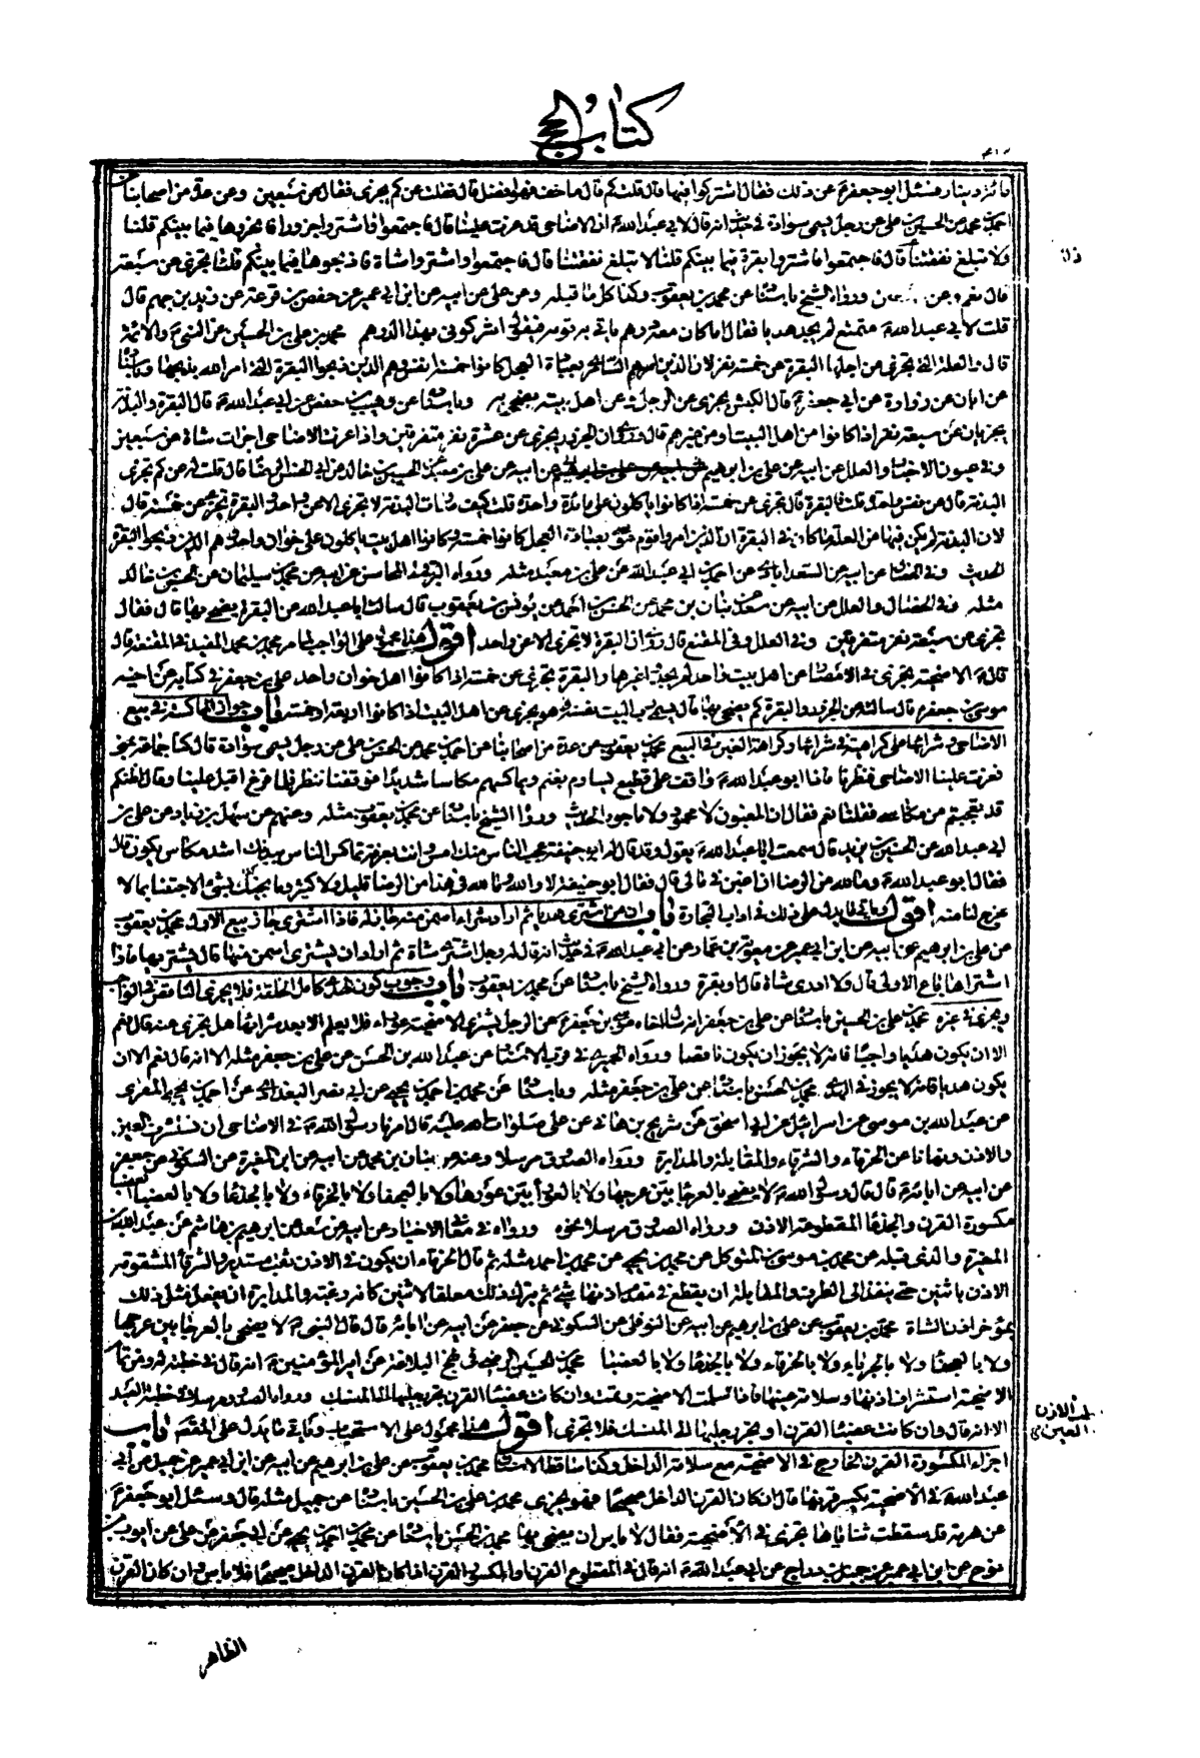 كتاب الحج
مائة دينار فسئل ابو جعفر ع عن ذلك فقال اشتركوا فيها قال قلت كم قال ما خف فهو افضل قال فقلت عن كم يجزى فقال عن سبعين وعن عدة من اصحابنا عن
احمد بن محمد عن الحسين بن على عن رجل يسمى سوادة فى حديث انه قال لابى عبد الله ع ان الاضاحى قد عزت علينا قال فاجتمعوا فاشتروا جزورا فانحروها فيما بينكم قلنا
ولا تبلغ نفقتنا قال فاجتمعوا فاشتروا بقرة فيما بينكم قلنا لا تبلغ نفقتنا قال فاجتمعوا واشتروا شاة فاذبحوها فيما بينكم قلنا تجزى عن سبعة
قال نعم وعن ورواه الشيخ باسناده عن محمد بن يعقوب وكذا كل ما قبله وعن على عن ابيه عن ابن ابى عمير عن حفص بن قرعة عن زيد بن جهم قال
قلت لابى عبد الله ع متمتع لم يجد هديا فقال اما كان معه درهم ياتى به قومه فيقول اشركونى بهذا الدرهم محمد بن على بن الحسين عن النبى ع والائمة
قال والعلة التى تجزى من اجلها البقرة عن خمسة نفر لان الذين امرهم السامرى بعبادة العجل كانوا خمسة انفس وهم الذين ذبحوا البقرة التى امر الله بذبحها وباسناده
عن ابان عن زرارة عن ابى جعفر ع قال الكبش يجزى عن الرجل وعن اهل بيته يضحى به وباسناده عن وهيب بن حفص عن ابى عبد الله ع قال البقرة والبدنة
يجزيان عن سبعة نفر اذا كانوا من اهل البيت او من غيرهم قال وروى ان الجزور يجزى عن عشرة نفر متفرقين واذا عزت الاضاحى اجزات شاة عن سبعين
وفى عيون الاخبار والعلل عن ابيه عن على بن ابراهيم عن ابيه عن على بن معبد عن الحسين بن خالد عن ابى الحسن الرضا ع قال قلت له عن كم تجزى
البدنة قال عن نفس واحدة قلت فالبقرة قال تجزى عن خمسة اذا كانوا ياكلون على مائدة واحدة قلت كيف صارت البدنة لا تجزى الا عن واحد والبقرة تجزى عن خمسة قال
لان البدنة لم يكن فيها من العلة ما كان فى البقرة ان الذين امروا قوم موسى بعبادة العجل كانوا خمسة وكانوا اهل بيت ياكلون على خوان واحد وهم الذين ذبحوا البقرة
الحديث وفى الخصال عن ابيه عن السعدابادى عن احمد بن ابى عبد الله عن على بن معبد مثله ورواه البرقى فى المحاسن عن ابيه عن محمد بن سليمان عن الحسين بن خالد
مثله وفى الخصال والعلل عن ابيه عن سعد عن بنان بن محمد عن الحسن بن احمد عن يونس بن يعقوب قال سالت ابا عبد الله عن البقرة يضحى بها قال فقال
تجزى عن سبعة نفر متفرقين وفى العلل وفى المقنع قال روى ان البقرة لا تجزى الا عن واحد اقول هذا محمول على الواجب لما مر محمد بن محمد المفيد فى المقنعة قال
قال ع الاضحية تجزى فى الامصار عن اهل بيت واحد لم يجدوا غيرها والبقرة تجزى عن خمسة اذا كانوا اهل خوان واحد على بن جعفر فى كتابه عن اخيه
موسى بن جعفر ع قال سالته عن الجزور والبقرة كم يضحى بها قال يسمى رب البيت نفسه فهو يجزى عن اهل البيت اذا كانوا اربعة او خمسة باب جواز المماكسة فى بيع
الاضاحى وشرائها على كراهية فى شرائها وكراهة الغبن فى البيع محمد بن يعقوب عن عدة من اصحابنا عن احمد بن محمد عن الحسين بن على عن رجل يسمى سوادة قال كنا جماعة بمنى
فعزت علينا الاضاحى فنظرنا فاذا ابو عبد الله ع واقف على قطيع يساوم بغنم ويماكسهم مكاسا شديدا فوقفنا ننظر فلما فرغ اقبل علينا وقال اظنكم
قد تعجبتم من مكاسى فقلنا نعم فقال ان المغبون لا محمود ولا ماجور الحديث ورواه الشيخ باسناده عن محمد بن يعقوب مثله وعنهم عن سهل بن زياد عن على بن
ابى عبد الله عن الحسين بن يزيد قال سمعت ابا عبد الله ع يقول وقد قال له ابو حنيفة عجب الناس منك امس وانت بعرفة تماكس الناس ببدنك اشد مكاس يكون قال
فقال ابو عبد الله ع وما لله من الرضا ان اغبن فى مالى قال فقال ابو حنيفة لا والله وما لله فى هذا من الرضا قليل ولا كثير وما نجيئك بشئ الا جئتنا بما لا
مخرج لنا منه اقول وياتى ما يدل على ذلك فى اداب التجارة باب ان من اشترى هديا ثم اراد شراء اسمن منه جاز له فاذا اشترى جاز بيع الاول محمد بن يعقوب
عن على بن ابراهيم عن ابيه عن ابن ابى عمير عن معوية بن عمار عن ابى عبد الله ع فى حديث انه قال لرجل اشترى شاة ثم اراد ان يشترى اسمن منها قال يشتريها فاذا
اشتراها باع الاولى قال ولا ادرى شاة قال او بقرة ورواه الشيخ باسناده عن محمد بن يعقوب باب وجوب كون الهدى كامل الخلقة فلا يجزى الناقص فى الواجب
ويجزى فى غيره محمد بن على بن الحسين باسناده عن على بن جعفر انه سال اخاه موسى بن جعفر ع عن الرجل يشترى الاضحية عوراء فلا يعلم الا بعد شرائها هل يجزى عنه قال نعم
الا ان يكون هديا واجبا فانه لا يجوز ان يكون ناقصا ورواه الحميرى فى قرب الاسناد عن عبد الله بن الحسن عن على بن جعفر مثله الا انه قال نعم الا ان
يكون هديا فانه لا يجوز فى الهدى محمد بن الحسن باسناده عن على بن جعفر مثله وباسناده عن محمد بن احمد بن يحيى عن ابى نصر البغدادى عن احمد بن يحيى المقرى
عن عبد الله بن موسى عن اسرائيل عن ابى اسحق عن شريح بن هانى عن على صلوات الله عليه قال امرنا رسول الله ص فى الاضاحى ان نستشرف العين
والاذن ونهانا عن الخرقاء والشرقاء والمقابلة والمدابرة ورواه الصدوق مرسلا وعنه عن بنان بن محمد عن ابيه عن ابن المغيرة عن السكونى عن جعفر
عن ابيه عن ابائه ع قال قال رسول الله ص لا يضحى بالعرجاء بين عرجها ولا بالعوراء بين عورها ولا بالعجفاء ولا بالخرقاء ولا بالجذعاء ولا بالعضباء العضباء
مكسورة القرن والجذعاء المقطوعة الاذن ورواه الصدوق مرسلا نحوه ورواه فى معانى الاخبار عن ابيه عن سعد عن ابراهيم بن هاشم عن عبد الله بن
المغيرة والذى قبله عن محمد بن موسى بن المتوكل عن محمد بن يحيى عن محمد بن احمد مثله ثم قال الخرقاء ان يكون فى الاذن ثقب مستدير والشرقاء المشقوقة
الاذن باثنين حتى ينفذ الى الطرف والمقابلة ان يقطع فى مقدم اذنها شئ ثم يترك ذلك معلقا لا تبين كانه زنمة والمدابرة ان يفعل مثل ذلك
بمؤخر اذن الشاة محمد بن يعقوب عن على بن ابراهيم عن ابيه عن النوفلى عن السكونى عن جعفر عن ابيه عن ابائه ع قال قال النبى ص لا يضحى بالعرجاء بين عرجها
ولا بالعجفاء ولا بالجرباء ولا بالخرقاء ولا بالجذعاء ولا بالعضباء محمد بن الحسين الرضى فى نهج البلاغة عن امير المؤمنين ع انه قال فى خطبة له ومن تمام
الاضحية استشراف اذنها وسلامة عينها فاذا سلمت الاضحية وتمت وان كانت عضباء القرن تجر رجلها الى المنسك ورواه الصدوق مرسلا فى خطبة العيد
الا انه قال وان كانت عضباء القرن او تجر رجلها الى المنسك فلا تجزى اقول هذا محمول على الاستحباب وياتى ما يدل على المقصود باب
اجزاء المكسورة القرن الخارج فى الاضحية مع سلامة الداخل وكذا ساقط الاسنان محمد بن يعقوب عن على بن ابراهيم عن ابيه عن ابن ابى عمير عن جميل عن ابى
عبد الله ع فى الاضحية يكسر قرنها قال ان كان القرن الداخل صحيحا فهو يجزى محمد بن على بن الحسين باسناده عن جميل مثله قال وسئل ابو جعفر ع
عن هرمة قد سقطت ثناياها تجزى فى الاضحية فقال لا باس ان يضحى بها محمد بن الحسن باسناده عن محمد بن احمد بن يحيى عن ابى جعفر عن على عن ايوب بن
نوح عن ابن ابى عمير عن جميل بن دراج عن ابى عبد الله ع انه قال فى المقطوع القرن والمكسور القرن اذا كان القرن الداخل صحيحا فلا باس وان كان القرن
الظاهر